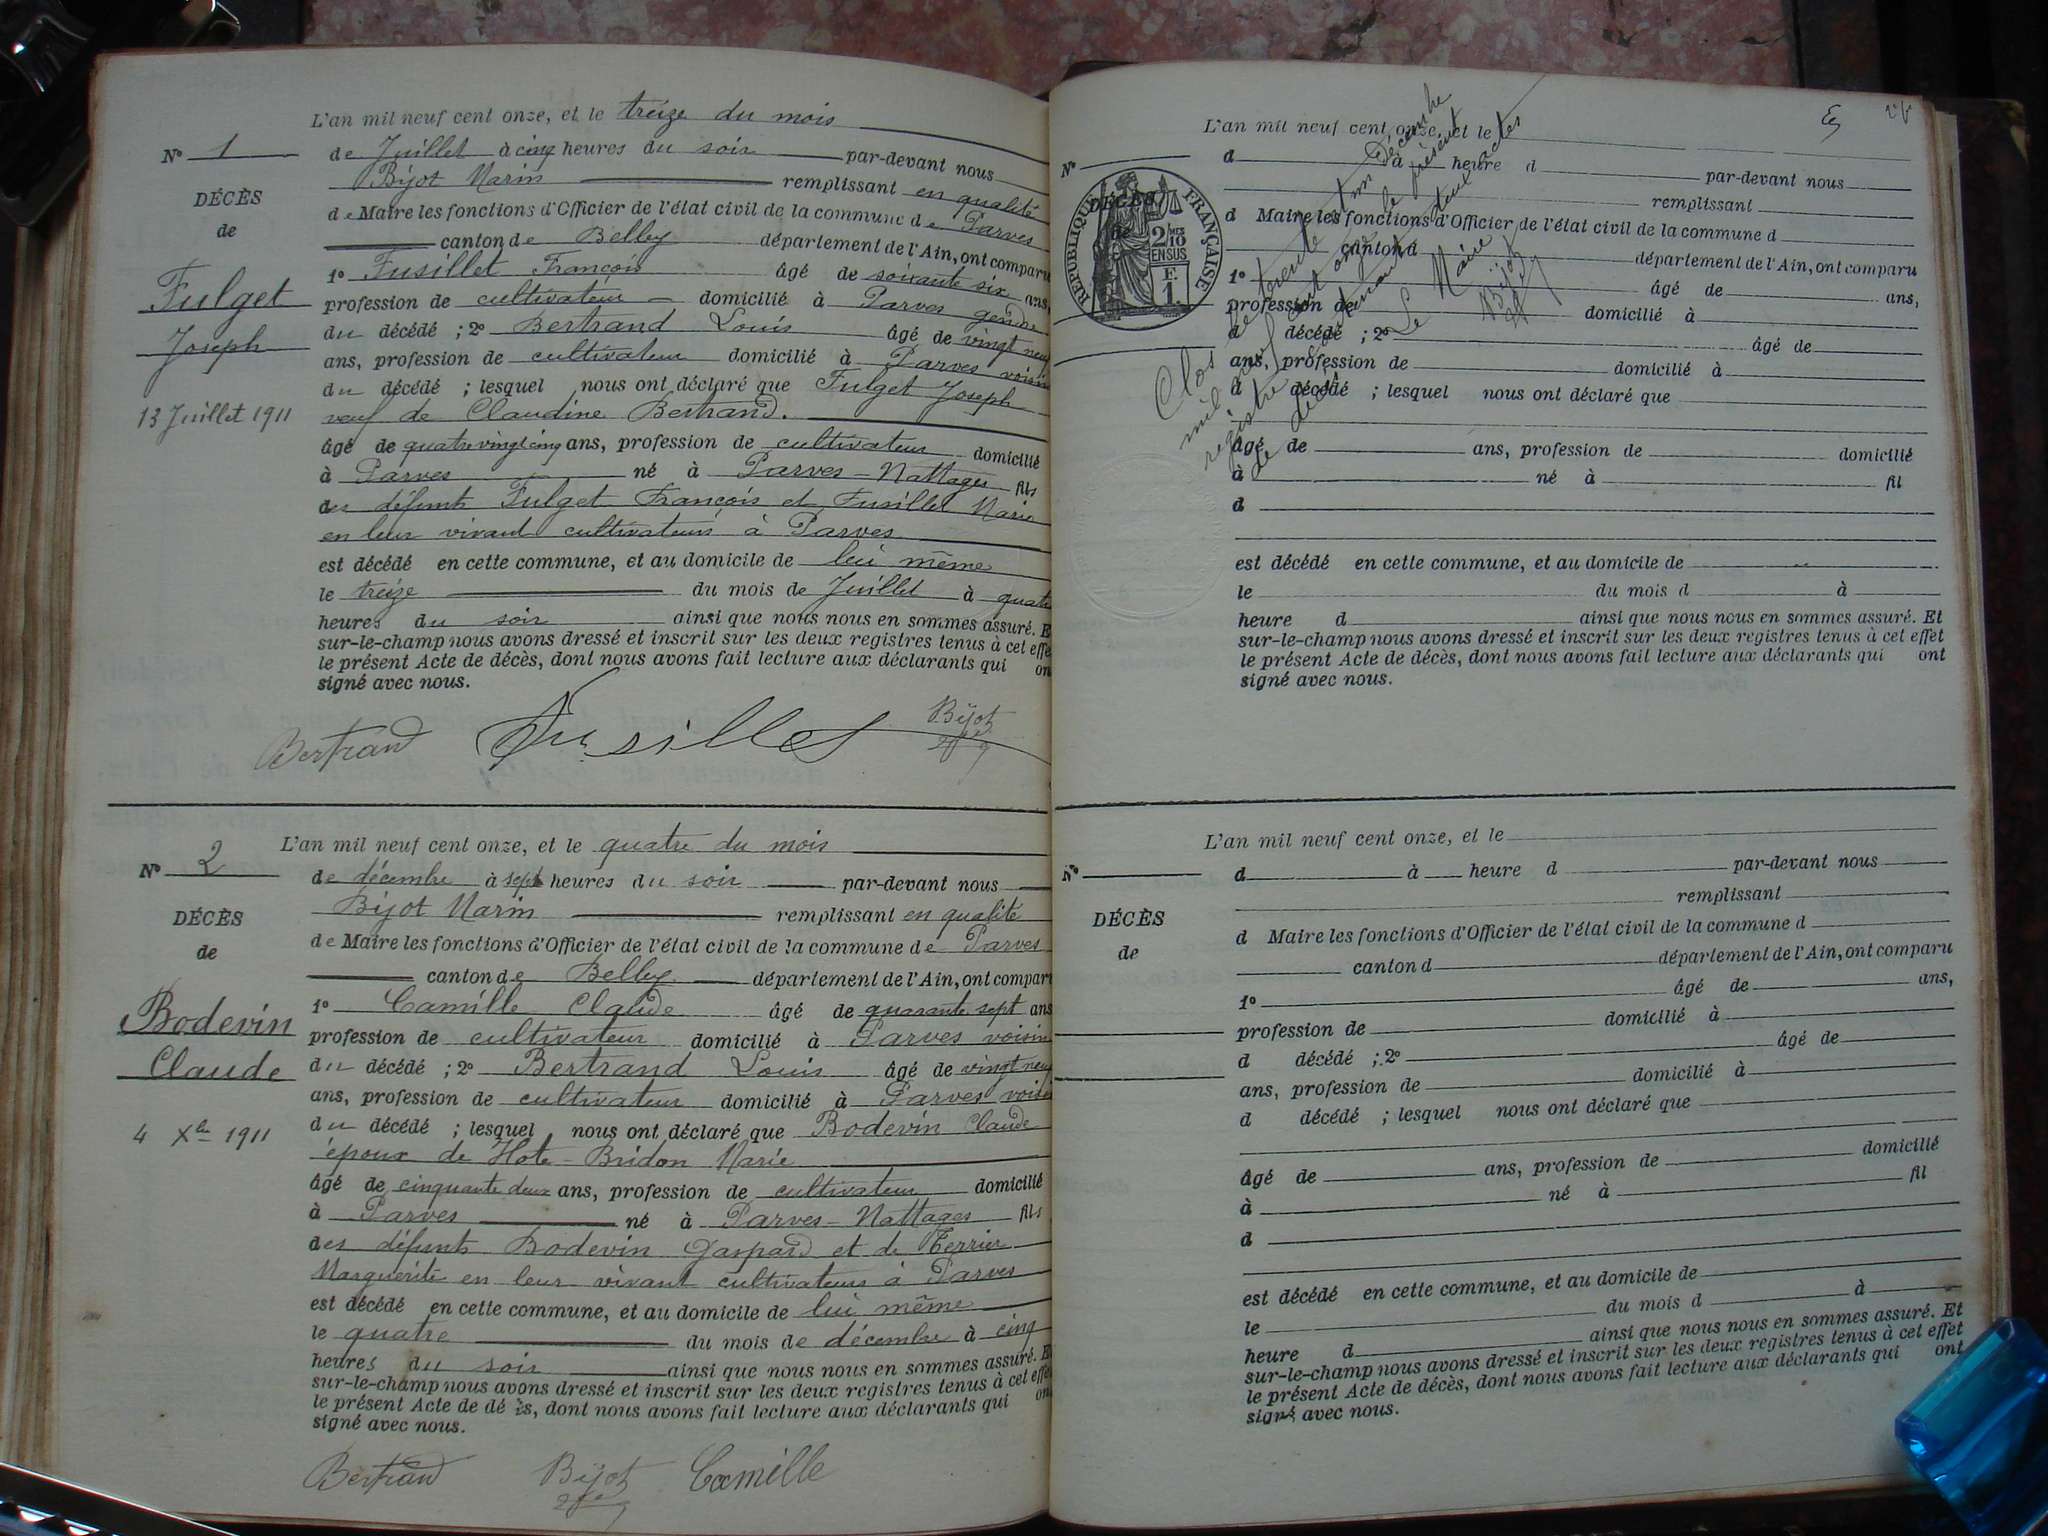 L'an mil neuf cent onze, et le treize du mois
N° 1
de Juillet à cinq heures du soir par-devant nous
Bijot Marin remplissant en qualité
DÉCÈS
de Maire les fonctions d'Officier de l'état civil de la commune de Parves
de
canton de Belley département de l'Ain, ont comparu
1° Fusillet François âgé de soixante six ans,
Fulget
profession de cultivateur domicilié à Parves gendre
du décédé ; 2° Bertrand Louis âgé de vingt neuf
Joseph
ans, profession de cultivateur domicilié à Parves voisin
du décédé ; lesquel nous ont déclaré que Fulget Joseph
13 Juillet 1911
veuf de Claudine Bertrand.
âgé de quatre vingt cinq ans, profession de cultivateur domicilié
à Parves né à Parves-Nattages fils
des défunts Fulget François et Fusillet Marie
en leur vivant cultivateurs à Parves
est décédé en cette commune, et au domicile de lui même
le treize du mois de Juillet à quatre
heures du soir ainsi que nous nous en sommes assuré. Et
sur-le-champ nous avons dressé et inscrit sur les deux registres tenus à cet effet
le présent Acte de décès, dont nous avons fait lecture aux déclarants qui ont
signé avec nous.
Bertrand Fusillet Bijot
L'an mil neuf cent onze, et le quatre du mois
N° 2
de décembre à sept heures du soir par-devant nous
Bijot Marin remplissant en qualité
DÉCÈS
de Maire les fonctions d'Officier de l'état civil de la commune de Parves
de
canton de Belley département de l'Ain, ont comparu
1° Camille Claude âgé de quarante sept ans
Bodevin
profession de cultivateur domicilié à Parves voisin
Claude
du décédé ; 2° Bertrand Louis âgé de vingt neuf
ans, profession de cultivateur domicilié à Parves voisin
4 Xbre 1911
du décédé ; lesquel nous ont déclaré que Bodevin Claude
époux de Hote-Bridon Marie
âgé de cinquante deux ans, profession de cultivateur domicilié
à Parves né à Parves-Nattages fils
des défunts Bodevin Gaspard et de Terrier
Marguerite en leur vivant cultivateurs à Parves
est décédé en cette commune, et au domicile de lui même
le quatre du mois de décembre à cinq
heures du soir ainsi que nous nous en sommes assuré. Et
sur-le-champ nous avons dressé et inscrit sur les deux registres tenus à cet effet
le présent Acte de décès, dont nous avons fait lecture aux déclarants qui ont
signé avec nous.
Bertrand Bijot Camille
L'an mil neuf cent onze, et le
N°
d à heure d par-devant nous
remplissant
DÉCÈS
de
RÉPUBLIQUE FRANÇAISE
2/10 EN SUS
F.
1.
d Maire les fonctions d'Officier de l'état civil de la commune d
canton d département de l'Ain, ont comparu
1° âgé de ans,
profession de domicilié à
d décédé ; 2° âgé de
ans, profession de domicilié à
d décédé ; lesquel nous ont déclaré que
âgé de ans, profession de domicilié
à né à fil
d
est décédé en cette commune, et au domicile de
le du mois d à
heure d ainsi que nous nous en sommes assuré. Et
sur-le-champ nous avons dressé et inscrit sur les deux registres tenus à cet effet
le présent Acte de décès, dont nous avons fait lecture aux déclarants qui ont
signé avec nous.
Clos le trente et un Décembre
mil neuf cent onze le présent
registre
de décès
Le Maire
Bijot
L'an mil neuf cent onze, et le
N°
d à heure d par-devant nous
remplissant
DÉCÈS
d Maire les fonctions d'Officier de l'état civil de la commune d
de
canton d département de l'Ain, ont comparu
1° âgé de ans,
profession de domicilié à
d décédé ; 2° âgé de
ans, profession de domicilié à
d décédé ; lesquel nous ont déclaré que
âgé de ans, profession de domicilié
à né à fil
d
est décédé en cette commune, et au domicile de
le du mois d à
heure d ainsi que nous nous en sommes assuré. Et
sur-le-champ nous avons dressé et inscrit sur les deux registres tenus à cet effet
le présent Acte de décès, dont nous avons fait lecture aux déclarants qui ont
signé avec nous.